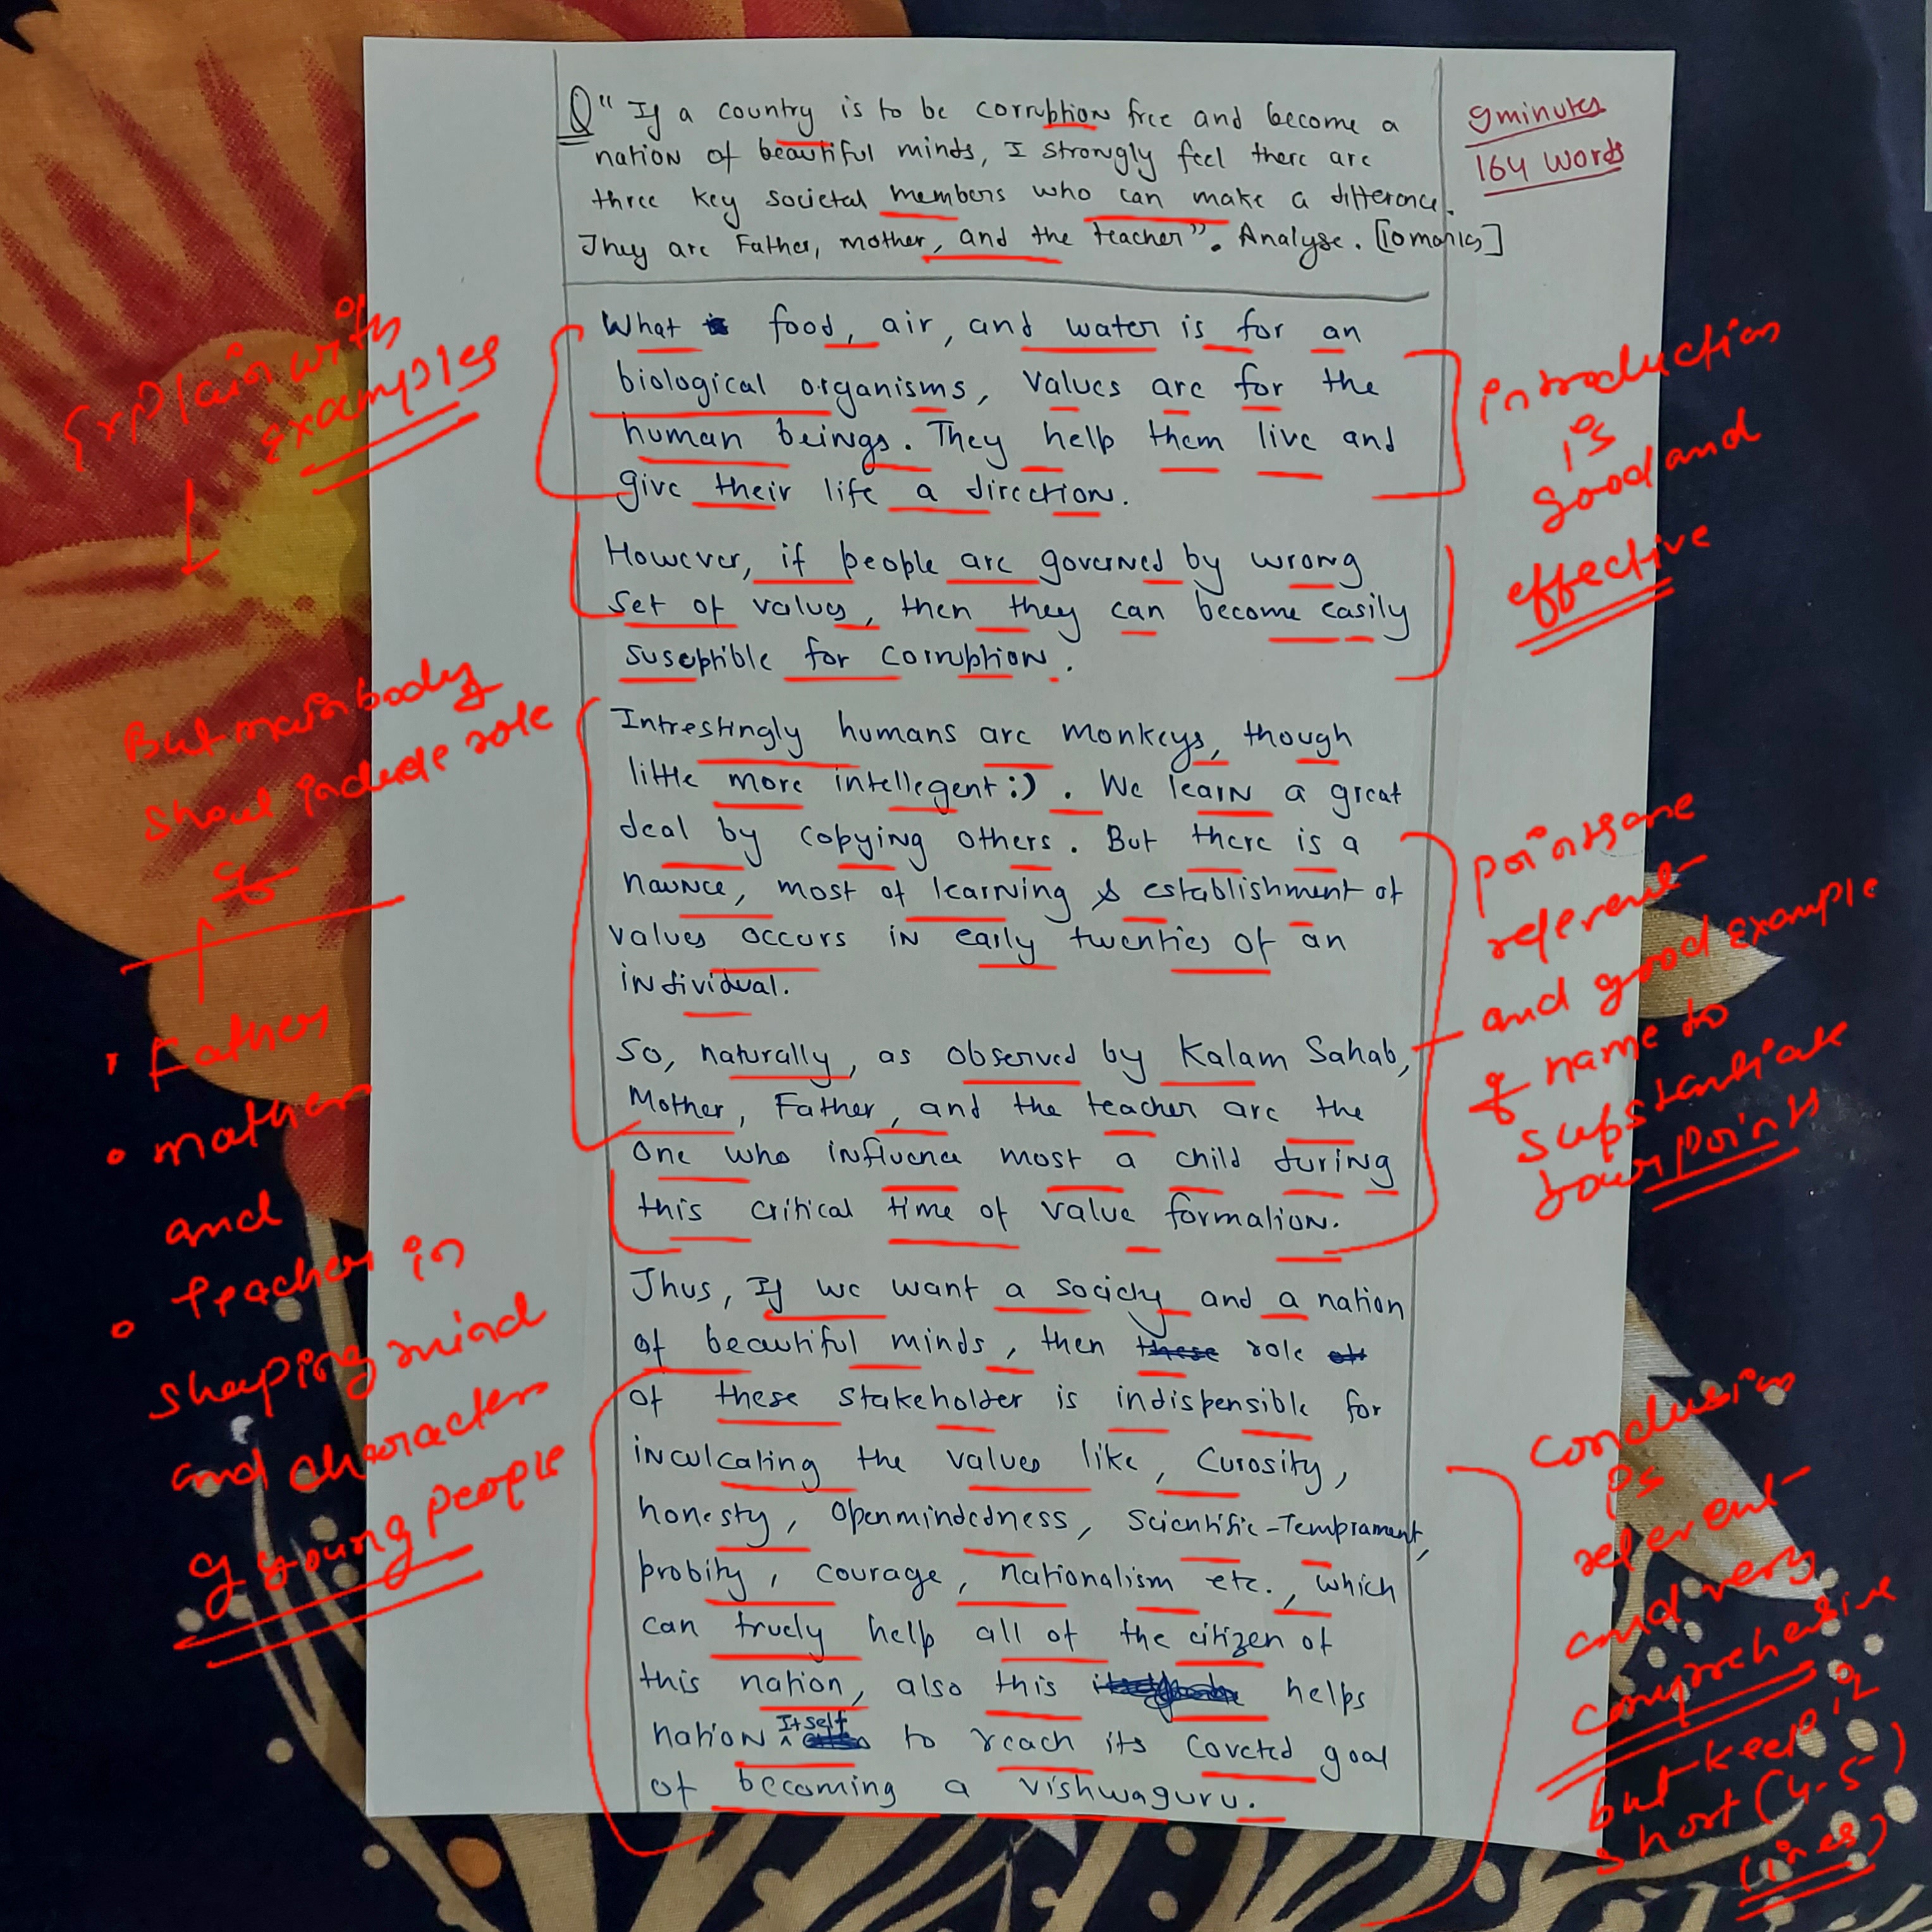 Q " If a country is to be corruption free and become a
nation of beautiful minds, I strongly feel there are
three key societal members who can make a difference.
They are Father, mother, and the teacher". Analyse. [10 marks]
9minutes
164 words
What food, air, and water is for an
biological organisms, values are for the
human beings. They help them live and
give their life a direction.
However, if people are governed by wrong
set of values, then they can become easily
suseptible for corruption.
Intrestingly humans are monkeys, though
little more intellegent :) . We learn a great
deal by copying others. But there is a
naunce, most of learning & establishment of
values occurs in early twenties of an
individual.
So, naturally, as observed by Kalam Sahab,
Mother, Father, and the teacher are the
one who influence most a child during
this critical time of value formation.
Thus, If we want a society and a nation
of beautiful minds, then these role
of these stakeholder is indispensible for
inculcating the values like, Curosity,
honesty, Openmindedness, Scientific-Temprament,
probity, courage, nationalism etc., which
can truely help all of the citizen of
this nation, also this helps
nation Itself to reach its coveted goal
of becoming a vishwaguru.
Explain with
examples
But main body
shoul include role
of
Father
• mother
and
• teacher in
shaping mind
and character
of young people
introduction
is
good and
effective
points are
referent
and good example
of name to
substantiate
your points
conclusion
is
referent
and very
comprehensive
but keep it
short (4-5
lines)